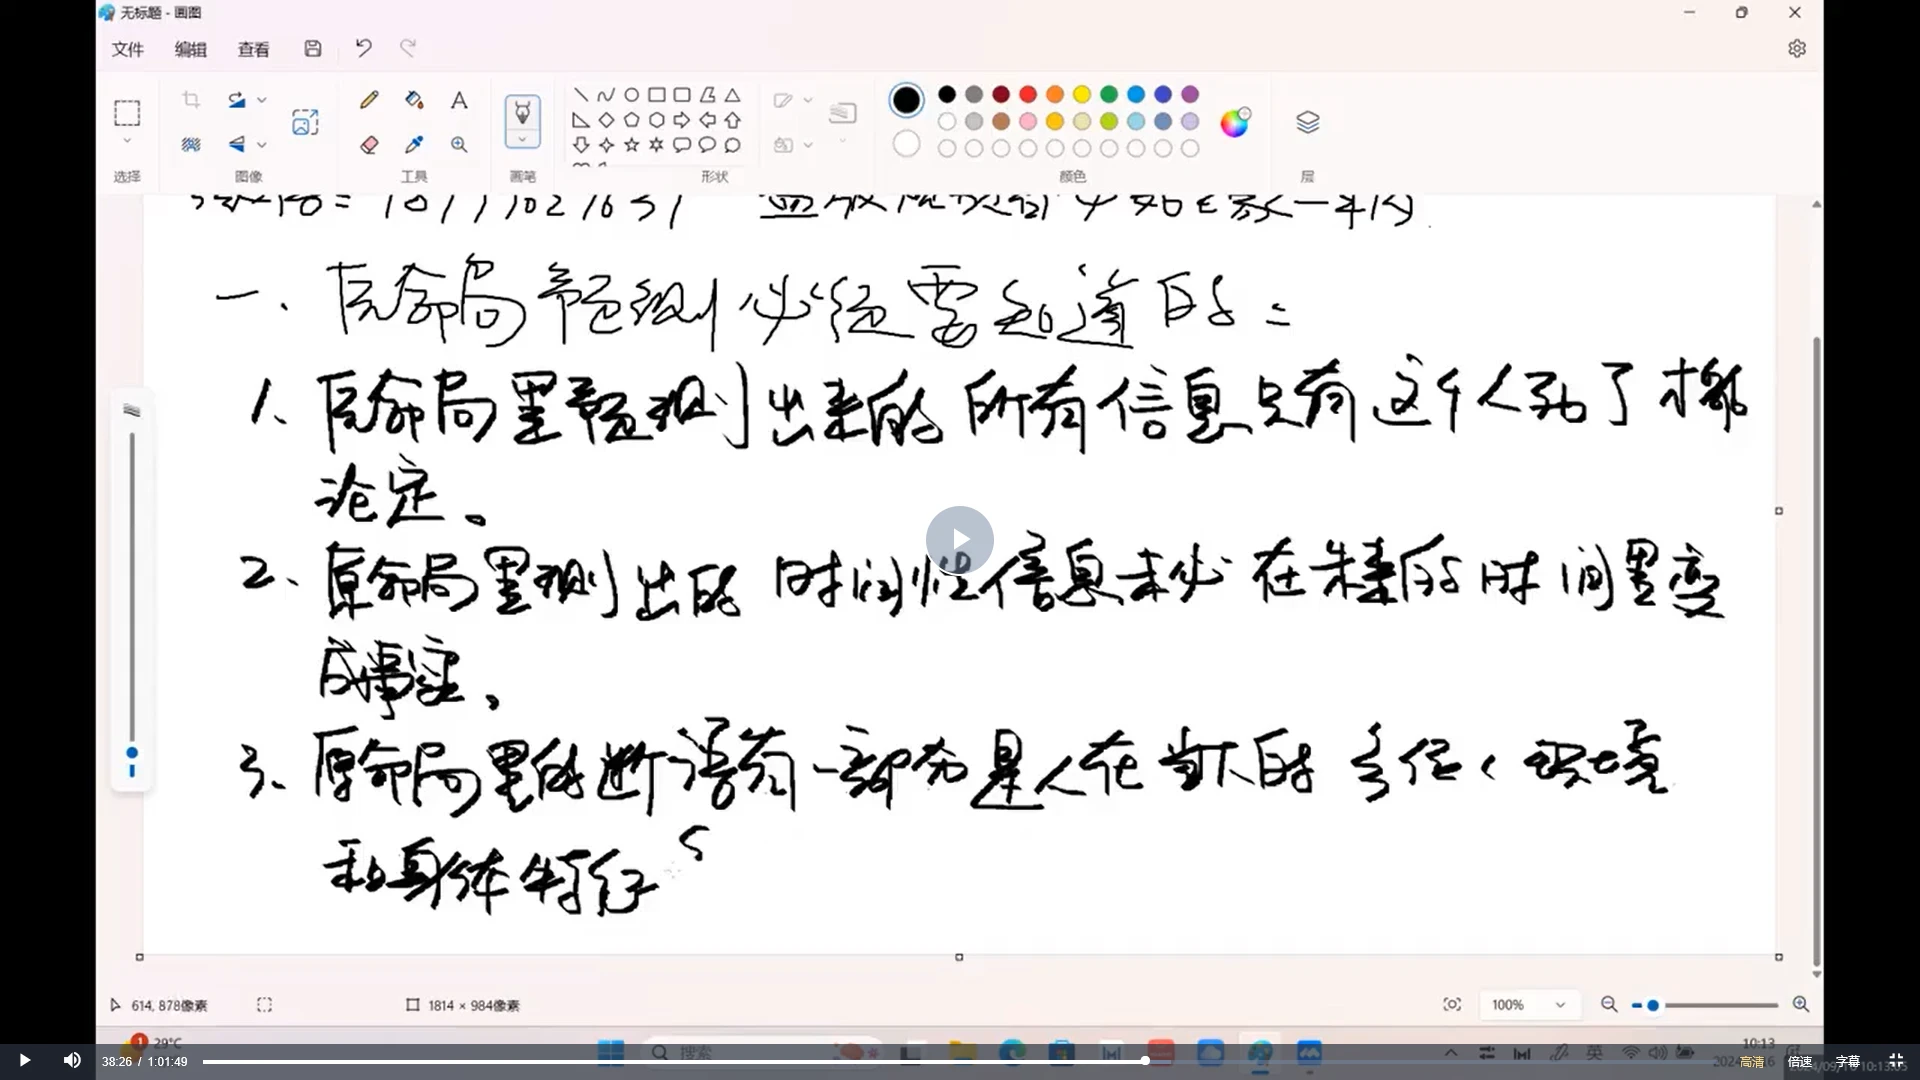 无标题 - 画图
文件 编辑 查看
选择 图像 工具 画笔 形状 颜色 层
一、原命局预测必须要知道的:
1、原命局里预测出来的所有信息只有这个人死了才能
论定。
2、原命局里测出的时间性信息未必在未来的时间里变
成事实。
3、原命局里的断语有一部分是人在当下的 、环境
和身体特征
614, 878像素
1814 × 984像素
100%
29°C
搜索
英
10:13
38:26 / 1:01:49
高清 倍速 字幕